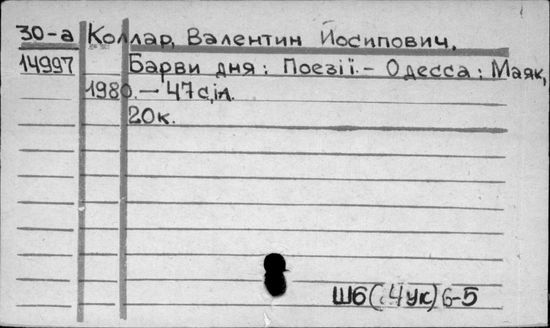 30-а Коллар, Валентин Йосипович.
14997 Барви дня: Поезії.- Одесса: Маяк,
1980.- 47с,іл.
20к.
Ш6(.4ук)6-5